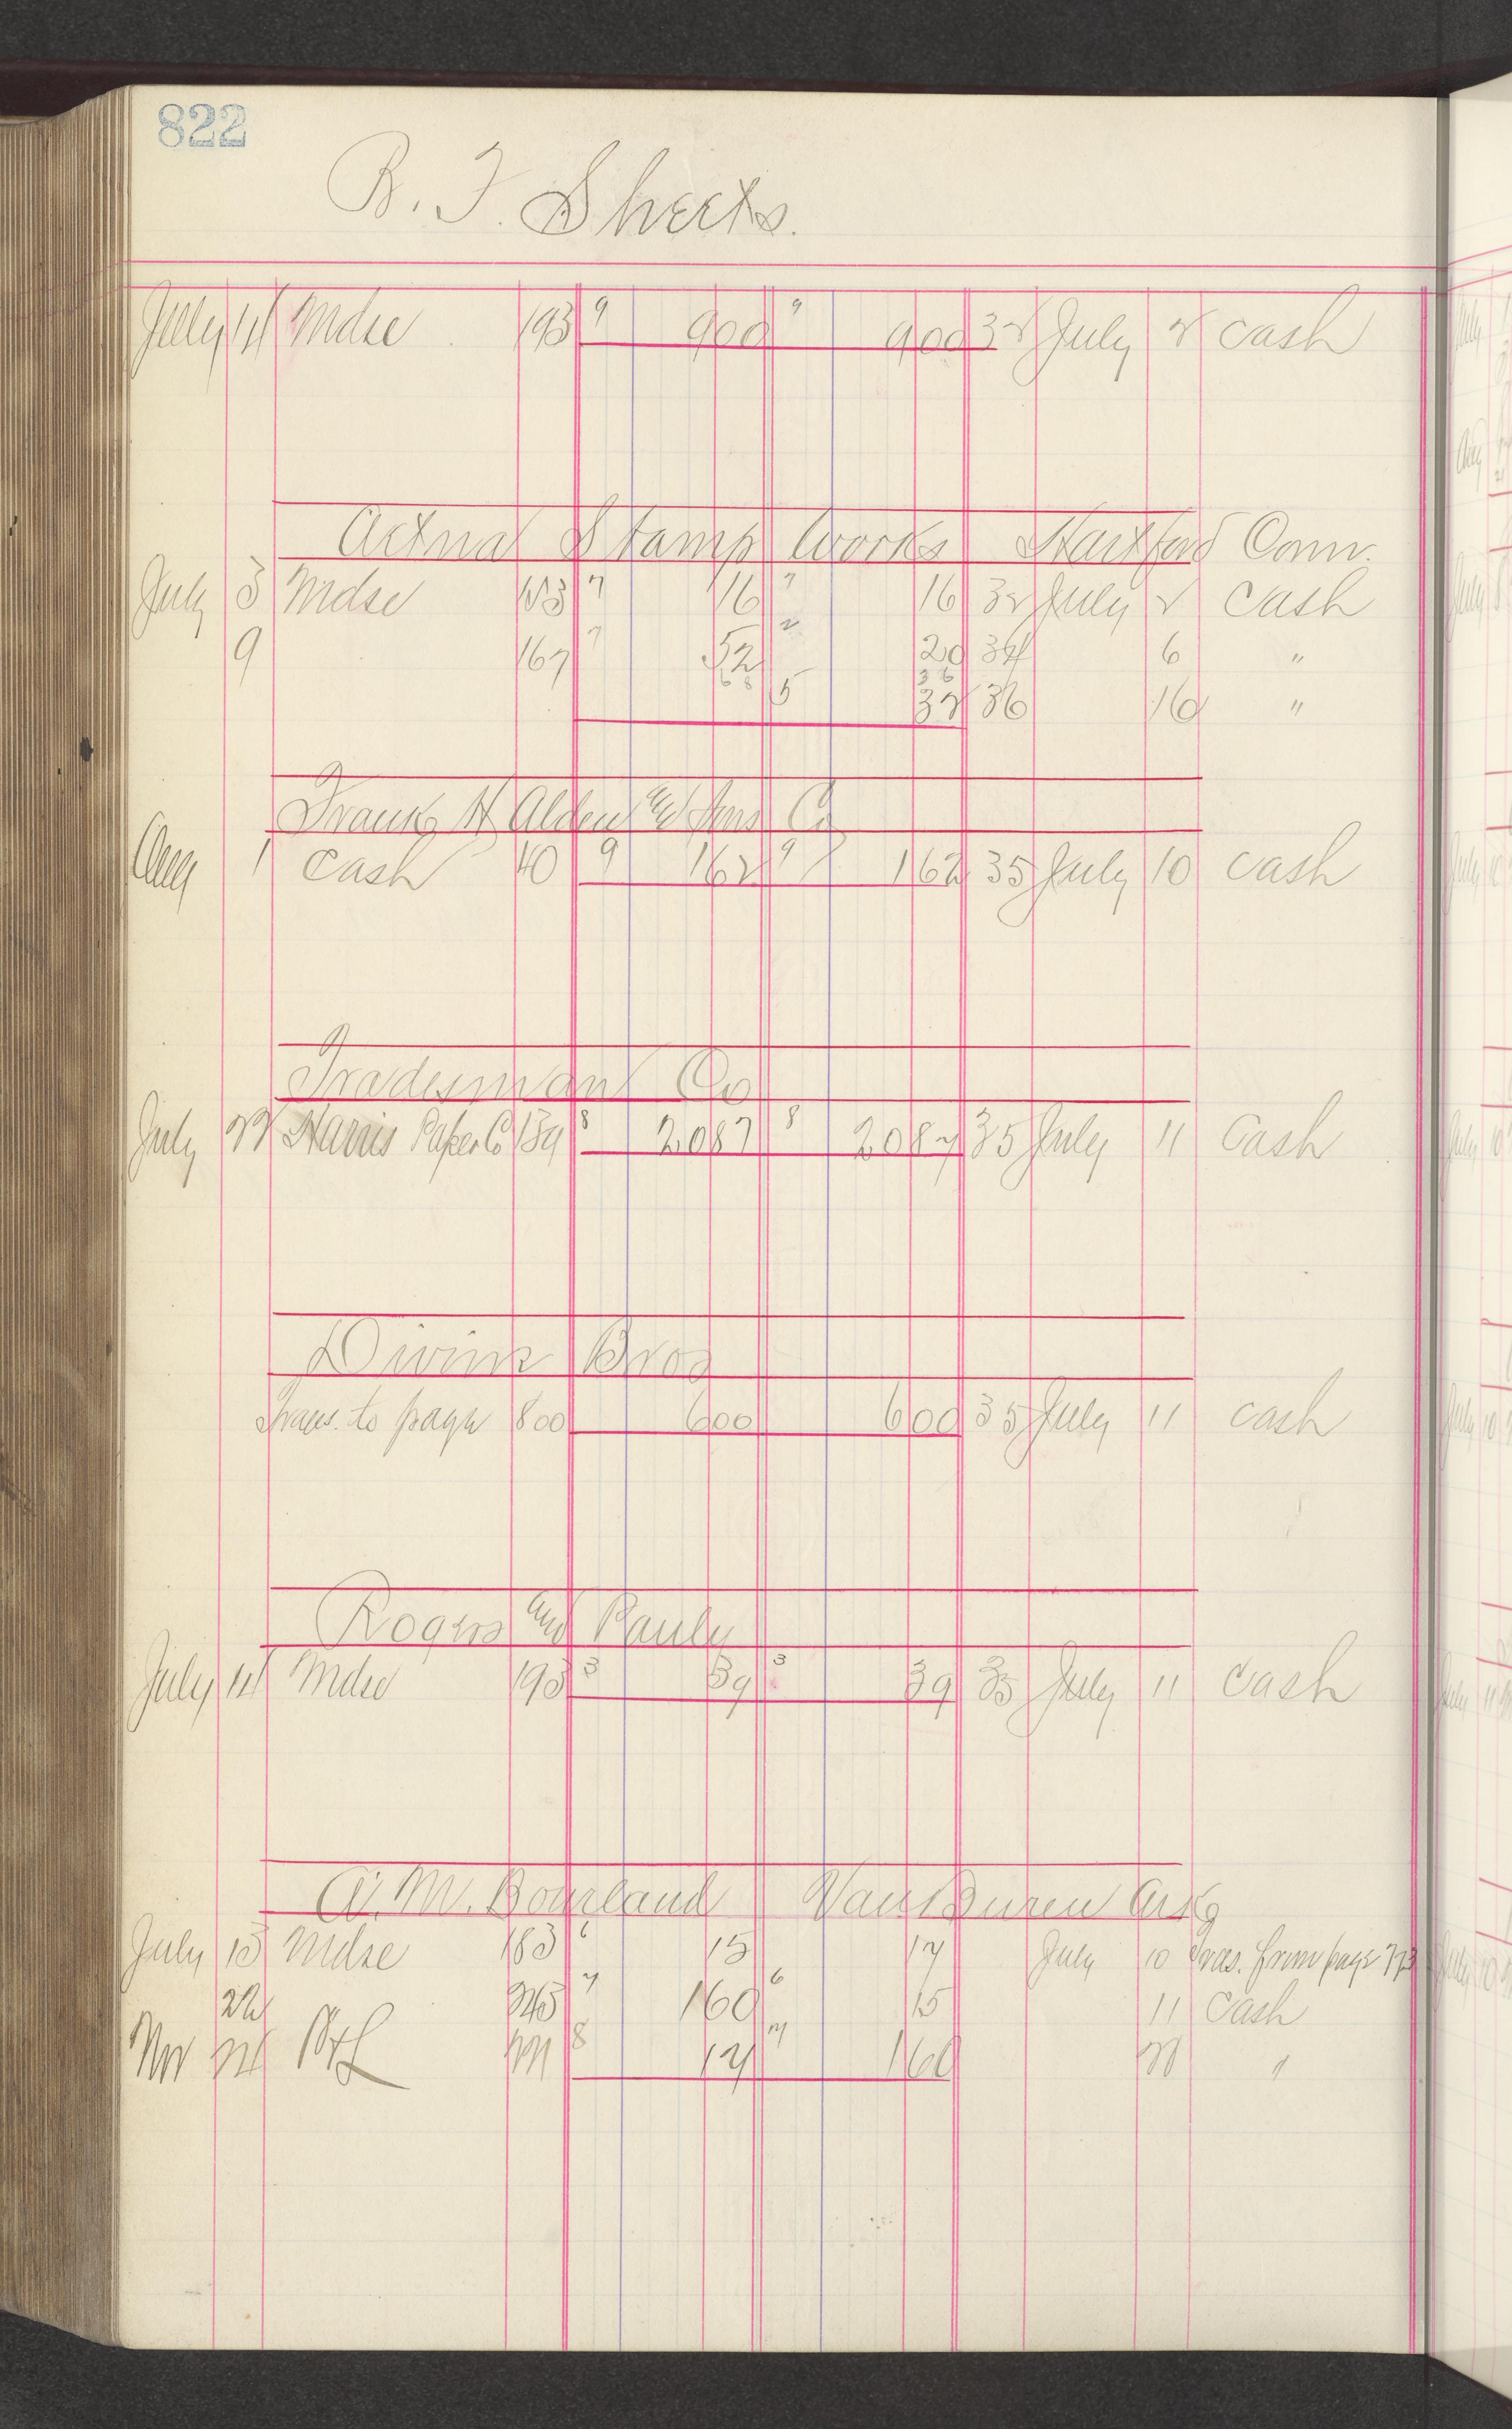 822
B. F. Sheets.
July 14 Mdse 193 9 900 9 900 32 July 2 Cash
Aetna Stamp Works Hartford Conn.
July 3 Mdse 153 7 16 7 16 32 July 2 Cash
9 167 7 52 2 20 34 6 "
68 5 36
32 36 16 "
Frank H Alden and Sons Co
Aug 1 Cash 40 9 162 9 162 35 July 10 Cash
Tradesman Co
July 22 Harris Paper Co 139 8 2087 8 2087 35 July 11 Cash
Divine Bros
Trans. to page 800 600 600 35 July 11 Cash
Rogers and Pauly
July 14 Mdse 193 3 39 3 39 35 July 11 Cash
A. M. Bourland Van Buren Ark
July 13 Mdse 183 6 15 17 July 10 Tras. from page
22 245 7 160 6 15 11 Cash
Nov P&L 8 17 7 160 "